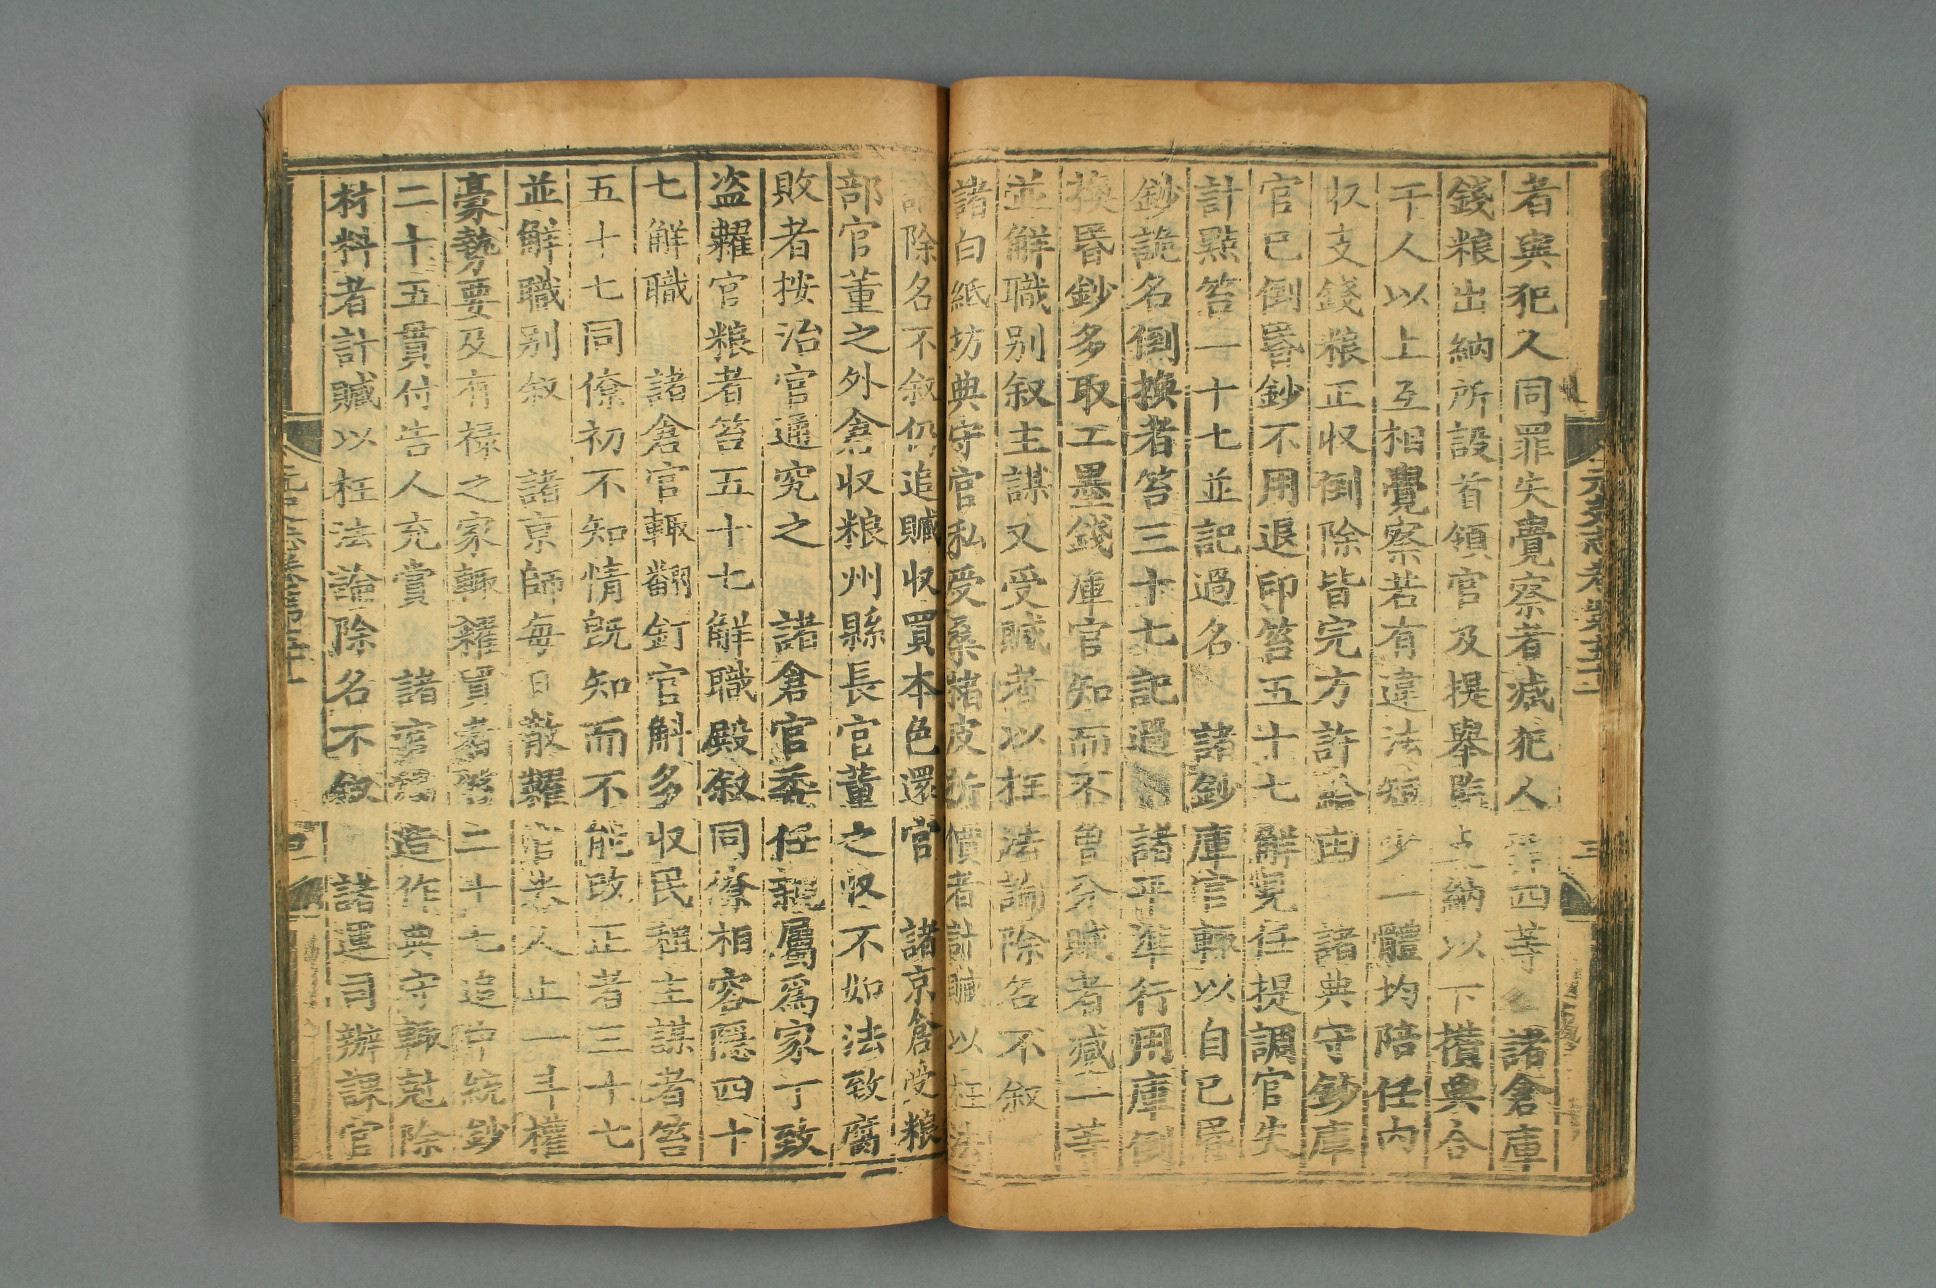 者與犯人同罪失覺察者减犯人罪四等 諸倉庫
錢粮出納所設首領官及提舉監支納以下攢典合
干人以上互相覺察若有違法短少一體均陪任內
收支錢粮正收倒除皆完方許給由 諸典守鈔庫
官已倒昬鈔不用退印笞五十七解見任提調官失
計點笞一十七並記過名 諸鈔庫官輒以自己昬
鈔詭名倒換者笞三十七記過 諸平準行用庫倒
換昬鈔多取工墨錢庫官知而不曾分贓者减一等
並解職别叙主謀又受贓者以枉法論除名不叙
諸白紙坊典守官私受桑楮皮折價者計贓以枉法
論除名不叙仍追贓收買本色還官 諸京倉受粮
部官董之外倉收粮州縣長官董之收不如法致腐
敗者按治官通究之 諸倉官委任親屬爲家丁致
盗糶官粮者笞五十七解職殿叙同僚相容隱四十
七解職 諸倉官輒翻釘官斛多收民租主謀者笞
五十七同僚初不知情旣知而不能改正者三十七
並解職别叙 諸京師每日散糶官米人止一斗權
豪勢要及有禄之家輒糴買者笞二十七追中統鈔
二十五貫付告人充賞 諸官局造作典守輒尅除
材料者計贓以枉法論除名不叙 諸運司辦課官
元史志卷第五十一
三
元史志卷第五十一
四